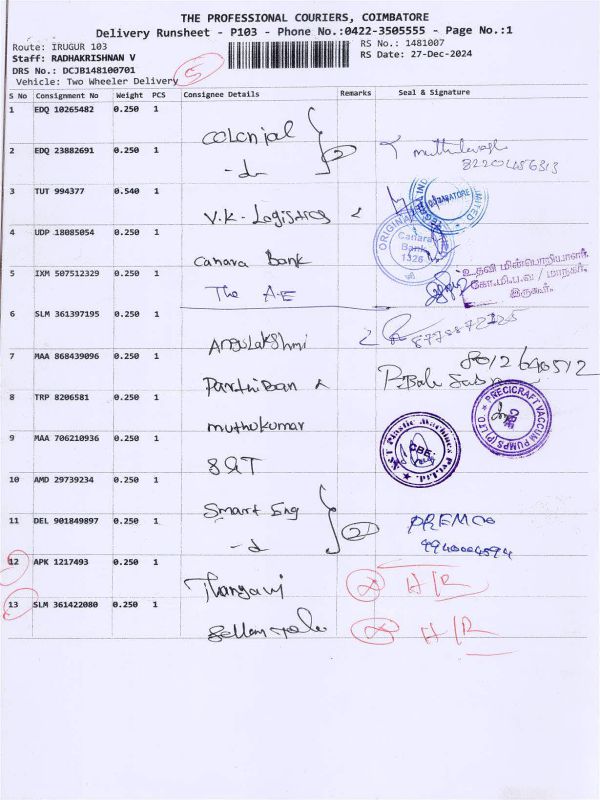 THE PROFESSIONAL COURIERS, COIMBATORE
Delivery Runsheet - P103 - Phone No.:0422-3505555 - Page No.:1
Route: IRUGUR 103
RS No.: 1481007
Staff: RADHAKRISHNAN V
RS Date: 27-Dec-2024
DRS No.: DCJB148100701
Vehicle: Two Wheeler Delivery
5
S No Consignment No Weight PCS Consignee Details Remarks Seal & Signature
1 EDQ 10265482 0.250 1 Colonial
2 EDQ 23882691 0.250 1 2
3 TUT 994377 0.540 1 V.K-Logistics
4 UDP 18085054 0.250 1 Canara Bank
5 IXM 507512329 0.250 1 The A-E
6 SLM 361397195 0.250 1
7 MAA 868439096 0.250 1 Parthiban
8 TRP 8206581 0.250 1 muthukumar
9 MAA 706210936 0.250 1
10 AMD 29739234 0.250 1 Smart Eng
11 DEL 901849897 0.250 1 2 PREMCO
12 APK 1217493 0.250 1
13 SLM 361422080 0.250 1
ORIGINAL
Canara Bank
1326
உதவி மின்பொறியாளர்
கோ.மி.ப.வ / மாநகர்
இருகூர்.
PRECICRAFT VACCUM PUMPS (P) LTD.
Plastic Machines Pvt.Ltd.
CBE
H/R
H/R